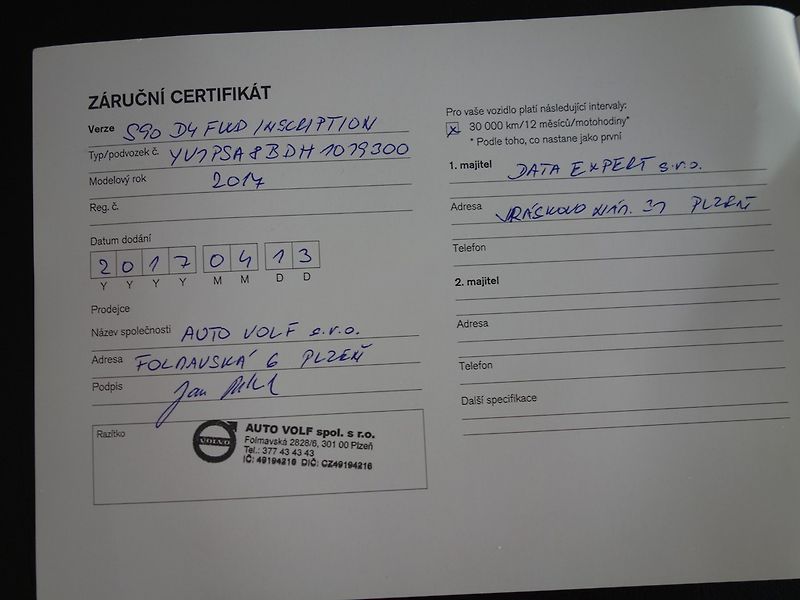 ZÁRUČNÍ CERTIFIKÁT
Verze S90 D4 FWD INSCRIPTION
Typ/podvozek č. YV1PSA8BDH1019300
Modelový rok 2017
Reg. č.
Datum dodání
2 0 1 7 0 4 1 3
Y Y Y Y M M D D
Prodejce
Název společnosti AUTO VOLF s.r.o.
Adresa FOLMAVSKÁ 6 PLZEŇ
Podpis Jan
Razítko
VOLVO
AUTO VOLF spol. s r.o.
Folmavská 2828/6, 301 00 Plzeň
Tel.: 377 43 43 43
IČ: 49194216 DIČ: CZ49194216
Pro vaše vozidlo platí následující intervaly:
x 30 000 km/12 měsíců/motohodiny*
* Podle toho, co nastane jako první
1. majitel DATA EXPERT s.r.o.
Adresa NÁM. 31 PLZEŇ
Telefon
2. majitel
Adresa
Telefon
Další specifikace